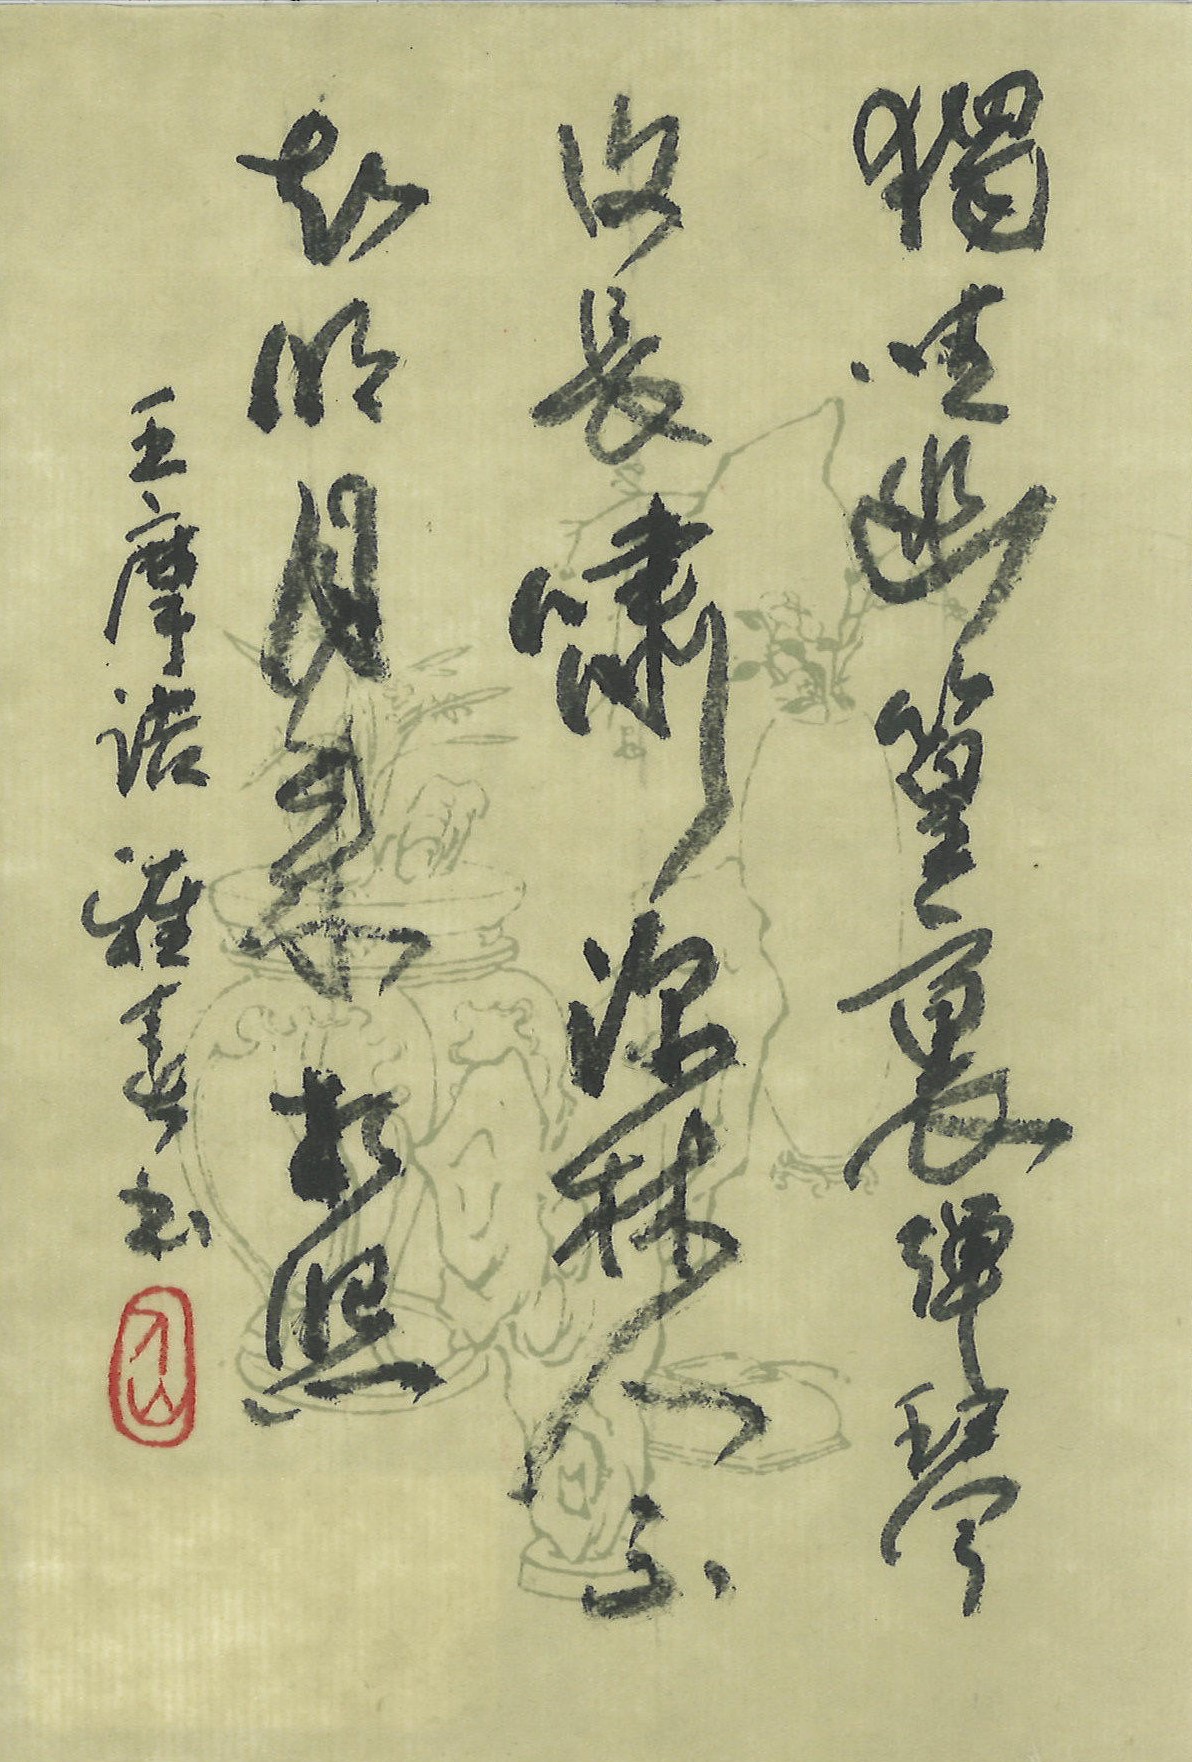 獨坐幽篁裏彈琴
復長嘯深林人不
知明月來相照
王摩詰 雅書